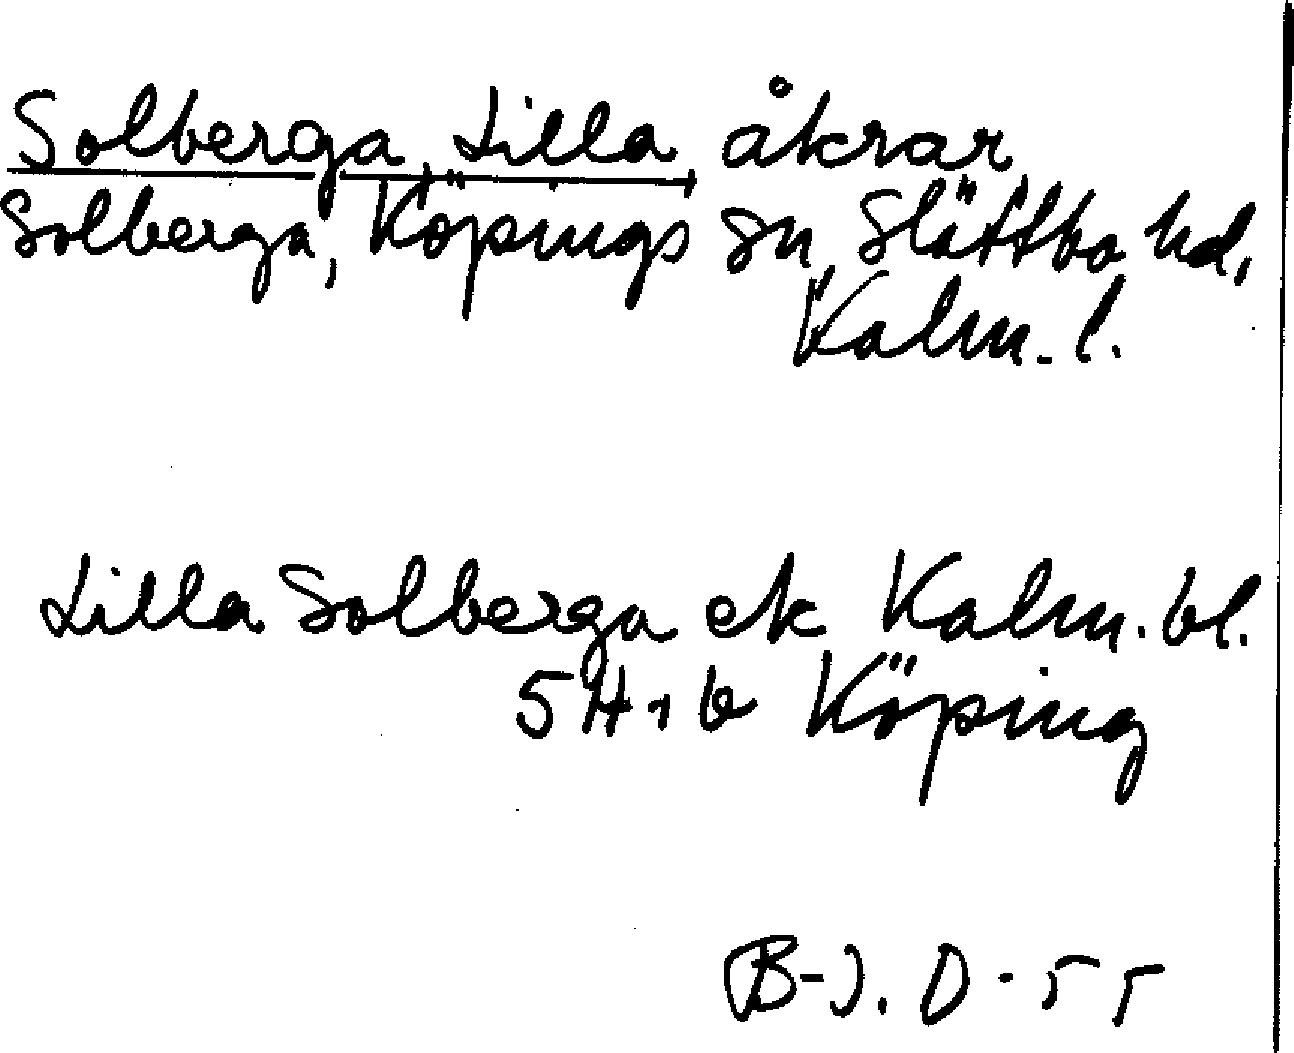 Solberga, Lilla åkrar
Solberga, Köpings sn, Slättbo hd,
Kalm. l.
Lilla Solberga ek Kalm. bl.
5 H 1 b Köping
B-J. D - 55